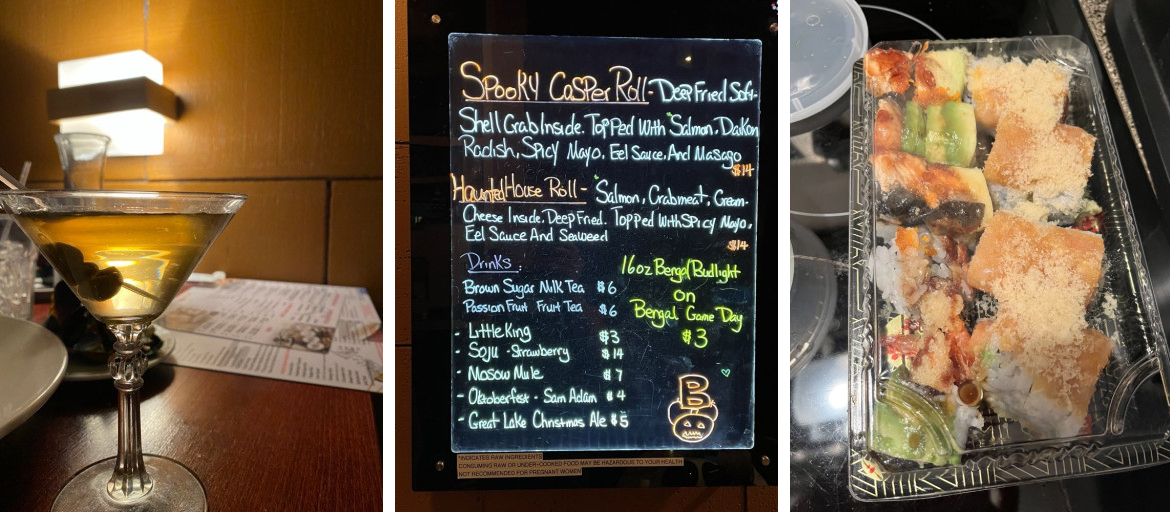 Spooky Casper Roll - Deep Fried Soft-
Shell Crab Inside. Topped With Salmon, Daikon
Radish, Spicy Mayo, Eel Sauce, And Masago
$14
Haunted House Roll - Salmon, Crabmeat, Cream-
Cheese Inside. Deep Fried. Topped With Spicy Mayo,
Eel Sauce And Seaweed
$14
Drinks:
Brown Sugar Milk Tea $6
Passion Fruit Fruit Tea $6
- Little King $3
- Soju - Strawberry $14
- Mosow Mule $7
- Oktoberfest - Sam Adam $4
- Great Lake Christmas Ale $5
16oz Bengal Budlight
On
Bengal Game Day
$3
B
*INDICATES RAW INGREDIENTS
CONSUMING RAW OR UNDER-COOKED FOOD MAY BE HAZARDOUS TO YOUR HEALTH
NOT RECOMMENDED FOR PREGNANT WOMEN